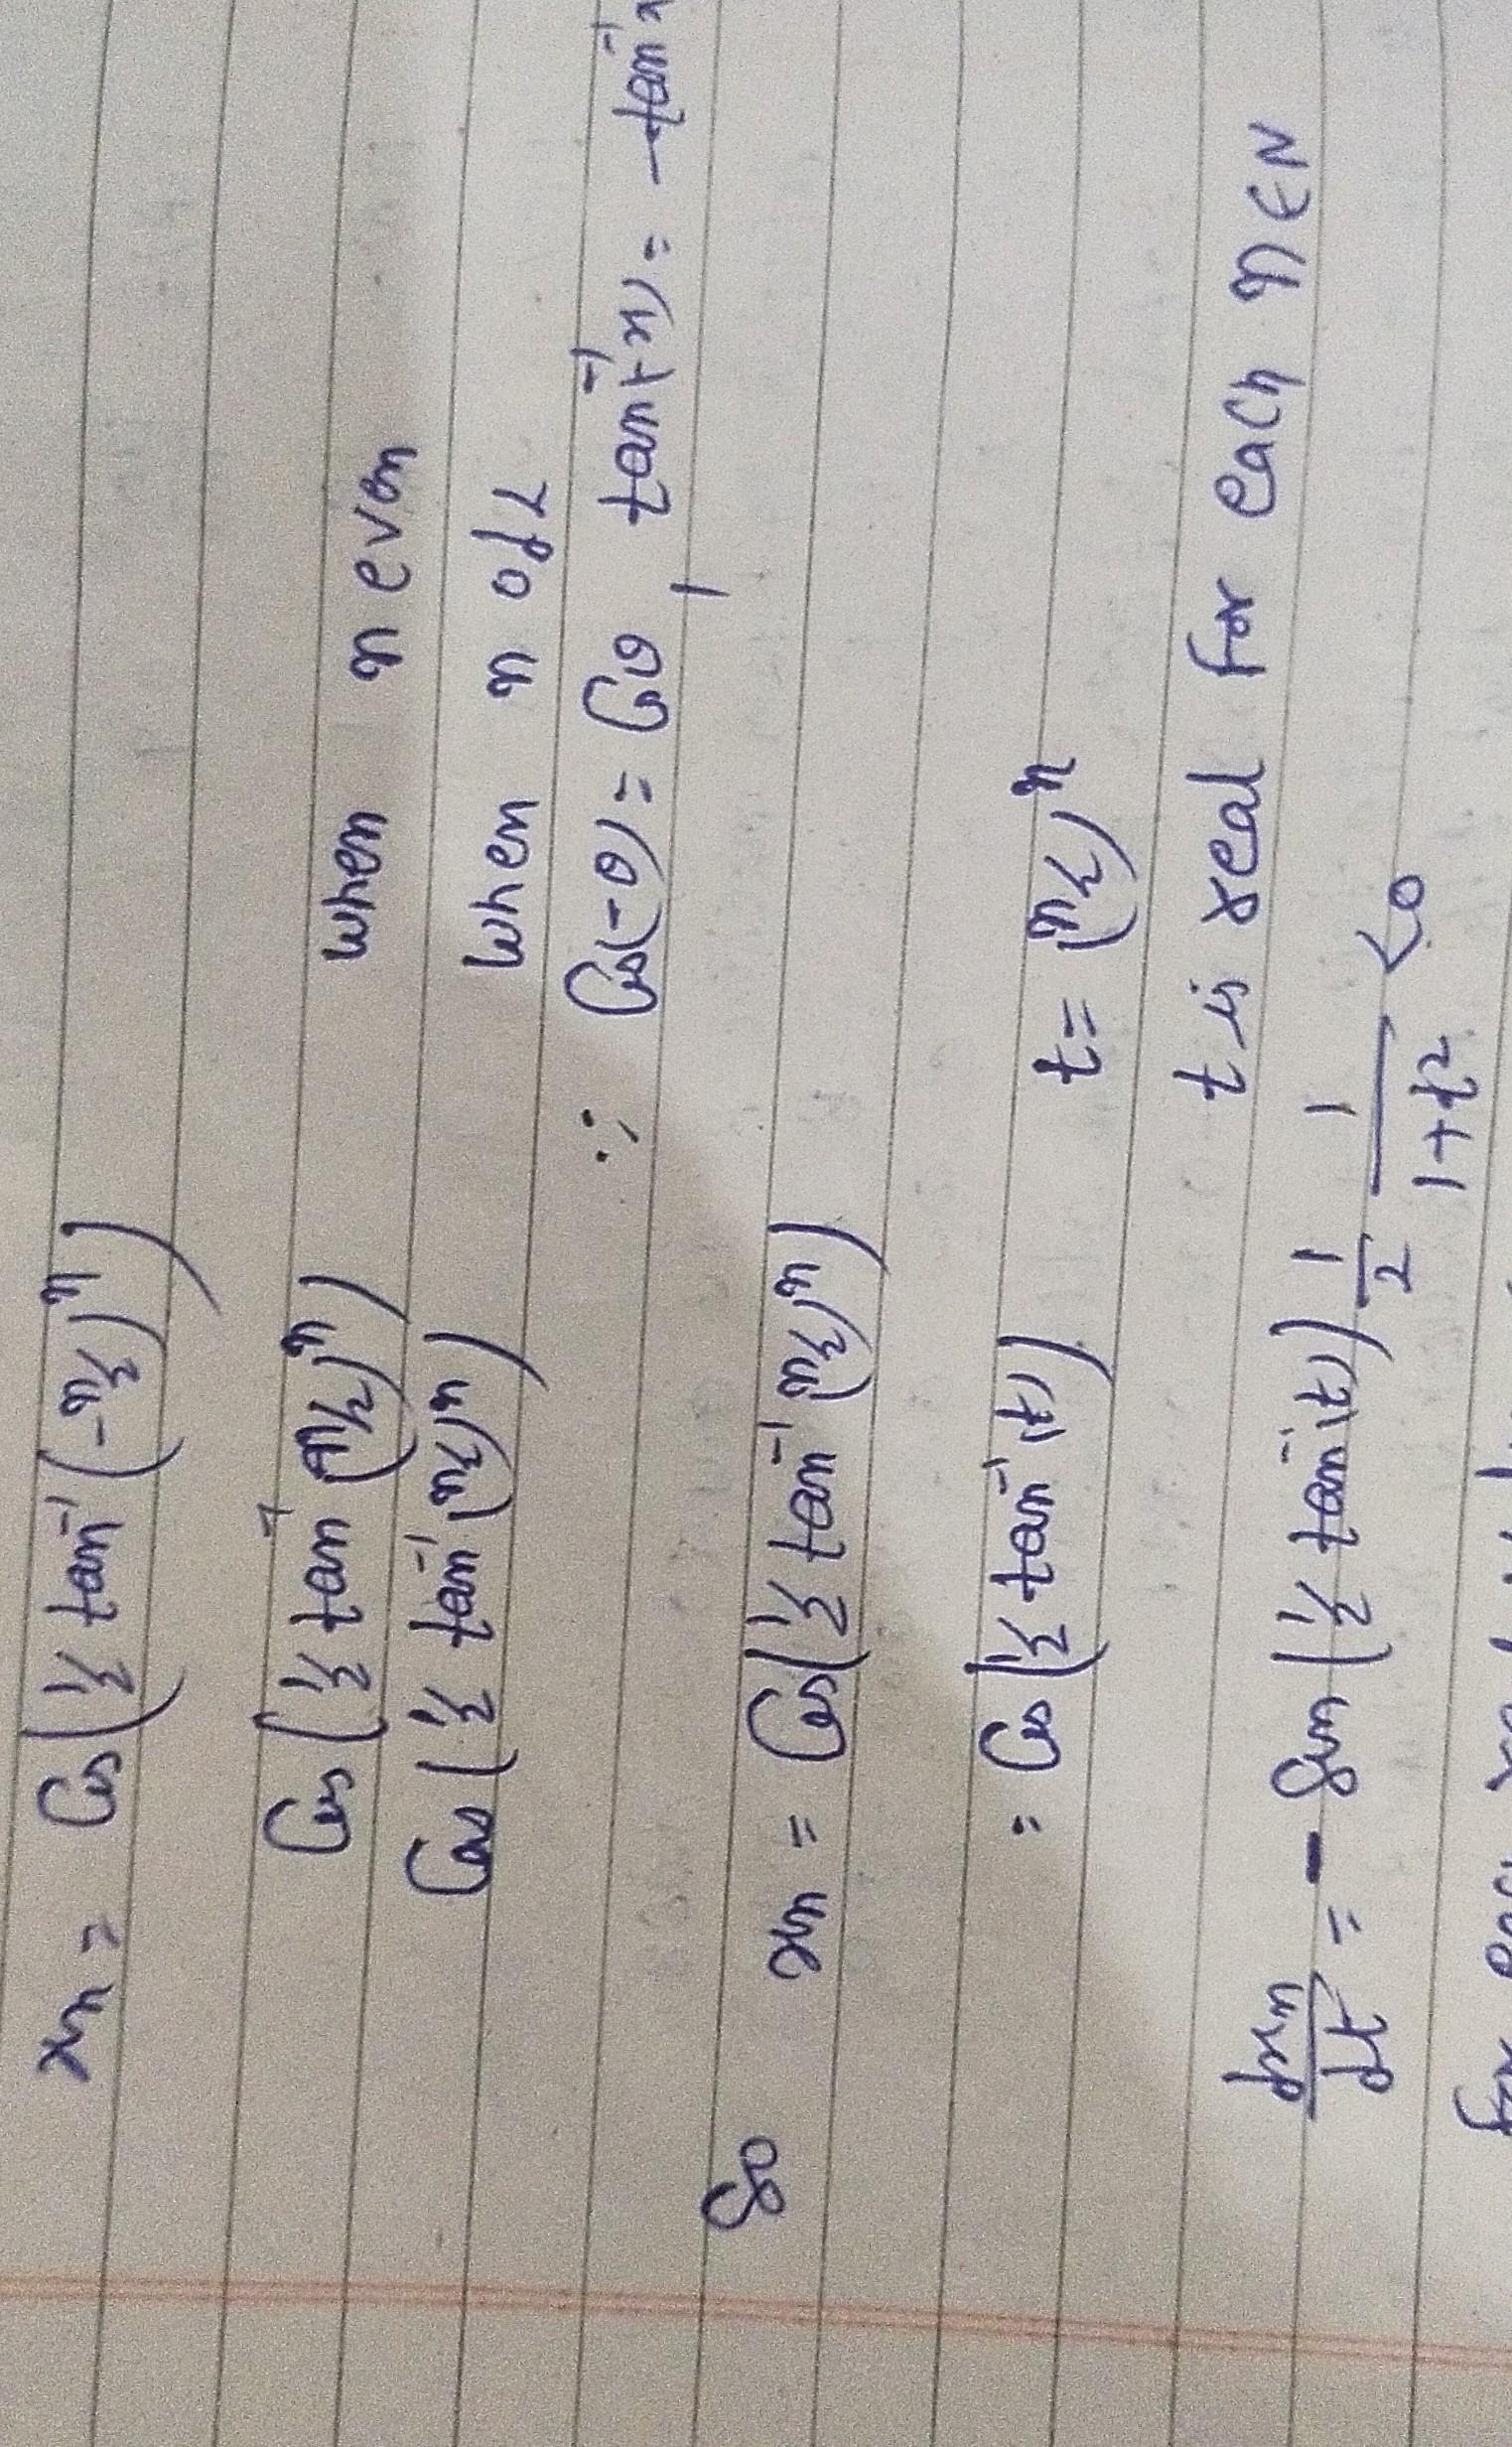 xn = Cos(½ tan⁻¹(-n/2)ⁿ)
Cos(½ tan⁻¹(n/2)ⁿ) when n even
Cos(½ tan⁻¹(n/2)ⁿ) when n odd
∵ Cos(-θ) = Cosθ, tan⁻¹(-x) = -tan⁻¹x
So xn = Cos(½ tan⁻¹(n/2)ⁿ)
= Cos(½ tan⁻¹(t)) t = (n/2)ⁿ
t is real for each n ∈ N
dxn/dt = - Sin(½ tan⁻¹(t)) 1/2 1/(1+t²) < 0
for